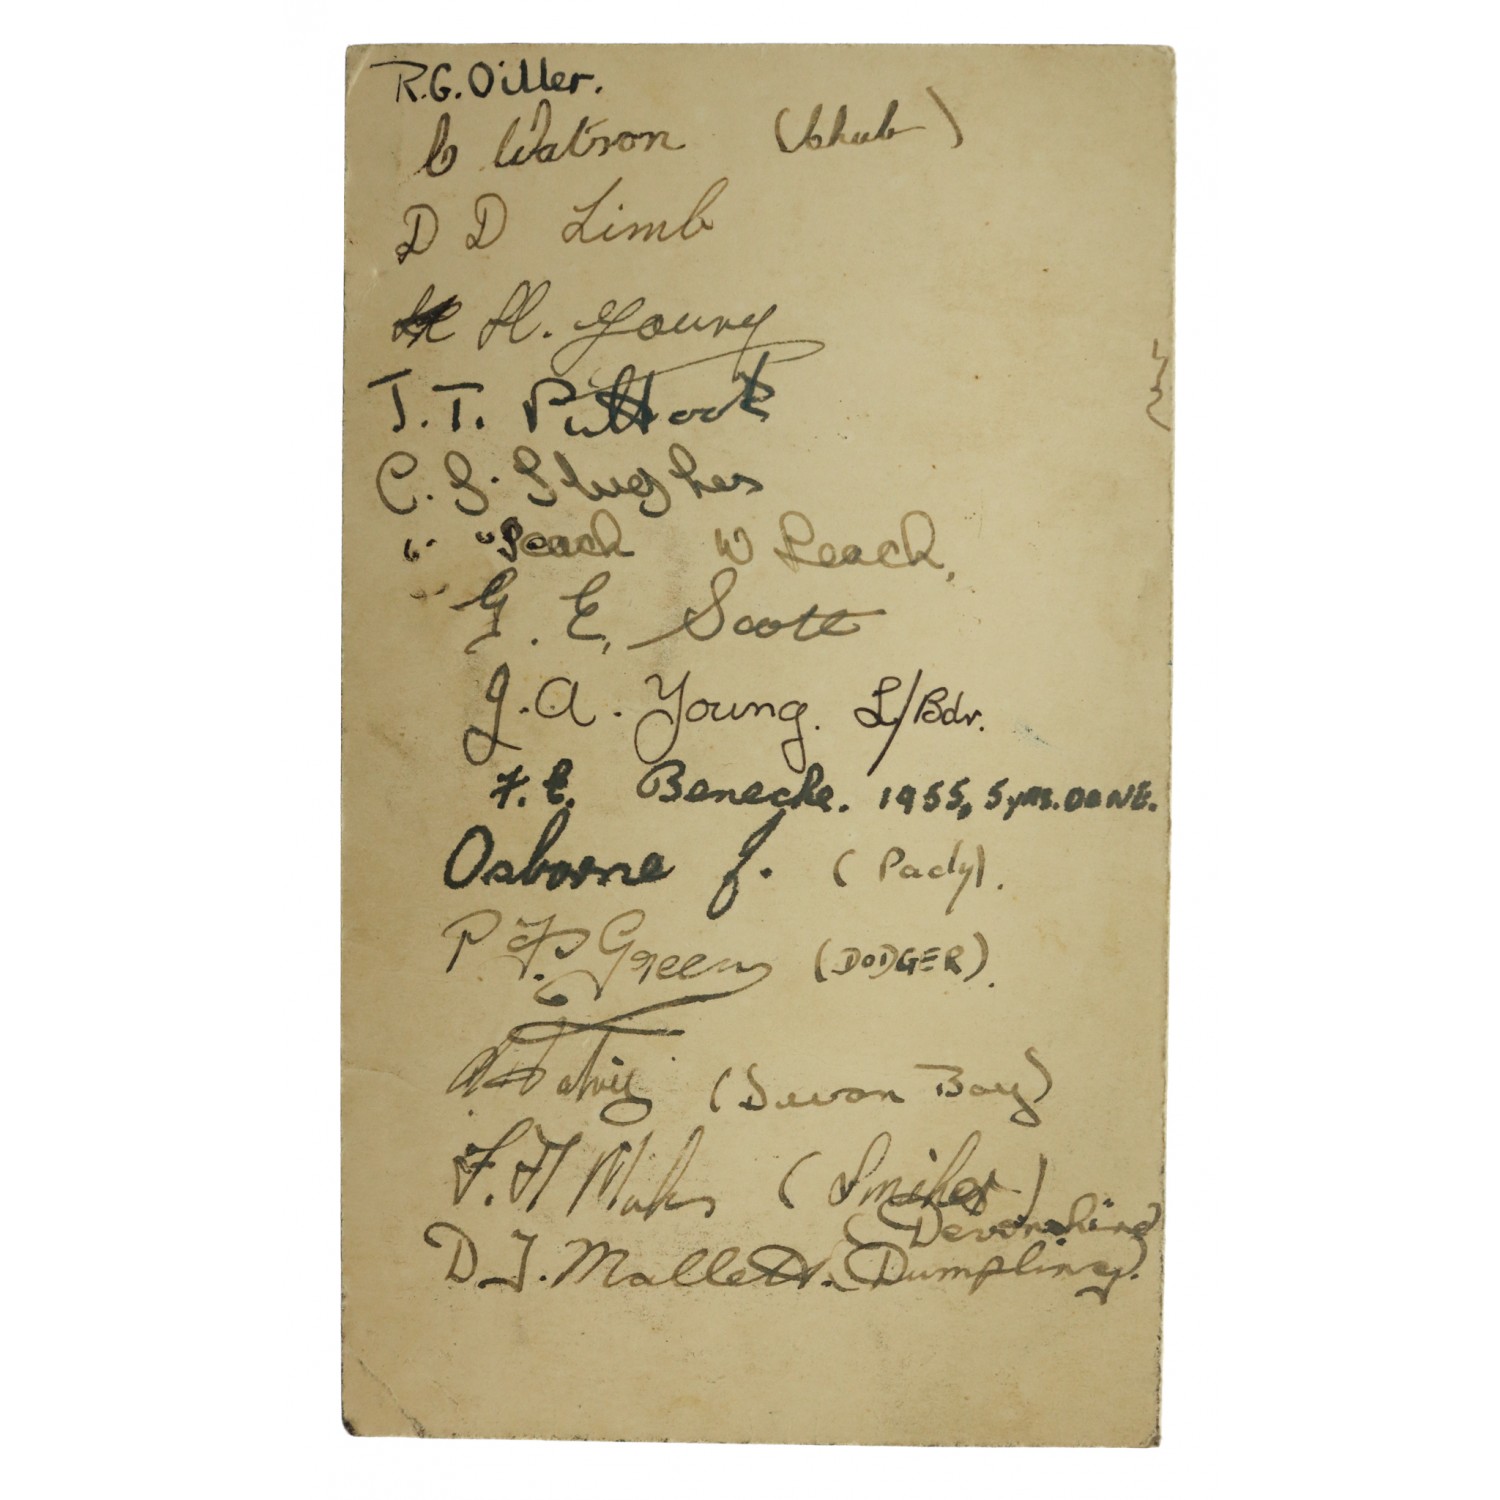 R.G. Oiller.
C Watson (Chub)
D D Limb
H. Young
J.T. Puttock
C. S. Hughes
" " Peach W Peach.
G. E. Scott
J. A. Young. L/Bdr.
F. E. Benecke. 1955, 5 yrs. DONE.
Osborne J. (Pady).
P F Green (DODGER).
(Devon Boy)
F. H (Smiler)
D J. Mallett. (Devonshire
Dumpling).